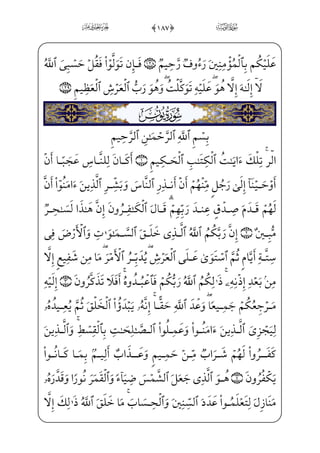 ﴿١٨٧﴾
عَلَيْكُم بِٱلْمُؤْمِنِينَ رَءُوفٌ رَّحِيمٌ ١٢٨ فَإِن تَوَلَّوْا۟ فَقُلْ حَسْبِىَ ٱللَّهُ
لَآ إِلَٰهَ إِلَّا هُوَ ۖ عَلَيْهِ تَوَكَّلْتُ ۖ وَهُوَ رَبُّ ٱلْعَرْشِ ٱلْعَظِيمِ ١٢٩
سُورَةُ يُونُسَ
بِسْمِ ٱللَّهِ ٱلرَّحْمَٰنِ ٱلرَّحِيمِ
الٓر ۚ تِلْكَ ءَايَٰتُ ٱلْكِتَٰبِ ٱلْحَكِيمِ ١ أَكَانَ لِلنَّاسِ عَجَبًا أَنْ
أَوْحَيْنَآ إِلَىٰ رَجُلٍ مِّنْهُمْ أَنْ أَنذِرِ ٱلنَّاسَ وَبَشِّرِ ٱلَّذِينَ ءَامَنُوٓا۟ أَنَّ
لَهُمْ قَدَمَ صِدْقٍ عِندَ رَبِّهِمْ ۗ قَالَ ٱلْكَٰفِرُونَ إِنَّ هَٰذَا لَسَٰحِرٌ
مُّبِينٌ ٢ إِنَّ رَبَّكُمُ ٱللَّهُ ٱلَّذِى خَلَقَ ٱلسَّمَٰوَٰتِ وَٱلْأَرْضَ فِى
سِتَّةِ أَيَّامٍ ثُمَّ ٱسْتَوَىٰ عَلَى ٱلْعَرْشِ ۖ يُدَبِّرُ ٱلْأَمْرَ ۖ مَا مِن شَفِيعٍ إِلَّا
مِنۢ بَعْدِ إِذْنِهِۦ ۚ ذَٰلِكُمُ ٱللَّهُ رَبُّكُمْ فَٱعْبُدُوهُ ۚ أَفَلَا تَذَكَّرُونَ ٣ إِلَيْهِ
مَرْجِعُكُمْ جَمِيعًا ۖ وَعْدَ ٱللَّهِ حَقًّا ۚ إِنَّهُۥ يَبْدَؤُا۟ ٱلْخَلْقَ ثُمَّ يُعِيدُهُۥ
لِيَجْزِىَ ٱلَّذِينَ ءَامَنُوا۟ وَعَمِلُوا۟ ٱلصَّٰلِحَٰتِ بِٱلْقِسْطِ ۚ وَٱلَّذِينَ
كَفَرُوا۟ لَهُمْ شَرَابٌ مِّنْ حَمِيمٍ وَعَذَابٌ أَلِيمٌۢ بِمَا كَانُوا۟
يَكْفُرُونَ ٤ هُوَ ٱلَّذِى جَعَلَ ٱلشَّمْسَ ضِيَآءً وَٱلْقَمَرَ نُورًا وَقَدَّرَهُۥ
مَنَازِلَ لِتَعْلَمُوا۟ عَدَدَ ٱلسِّنِينَ وَٱلْحِسَابَ ۚ مَا خَلَقَ ٱللَّهُ ذَٰلِكَ إِلَّا